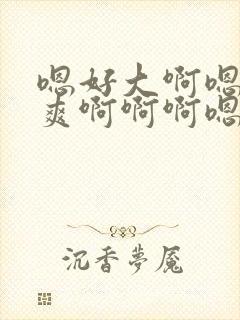 嗯好大啊嗯
爽啊啊啊嗯
沉香夢魘